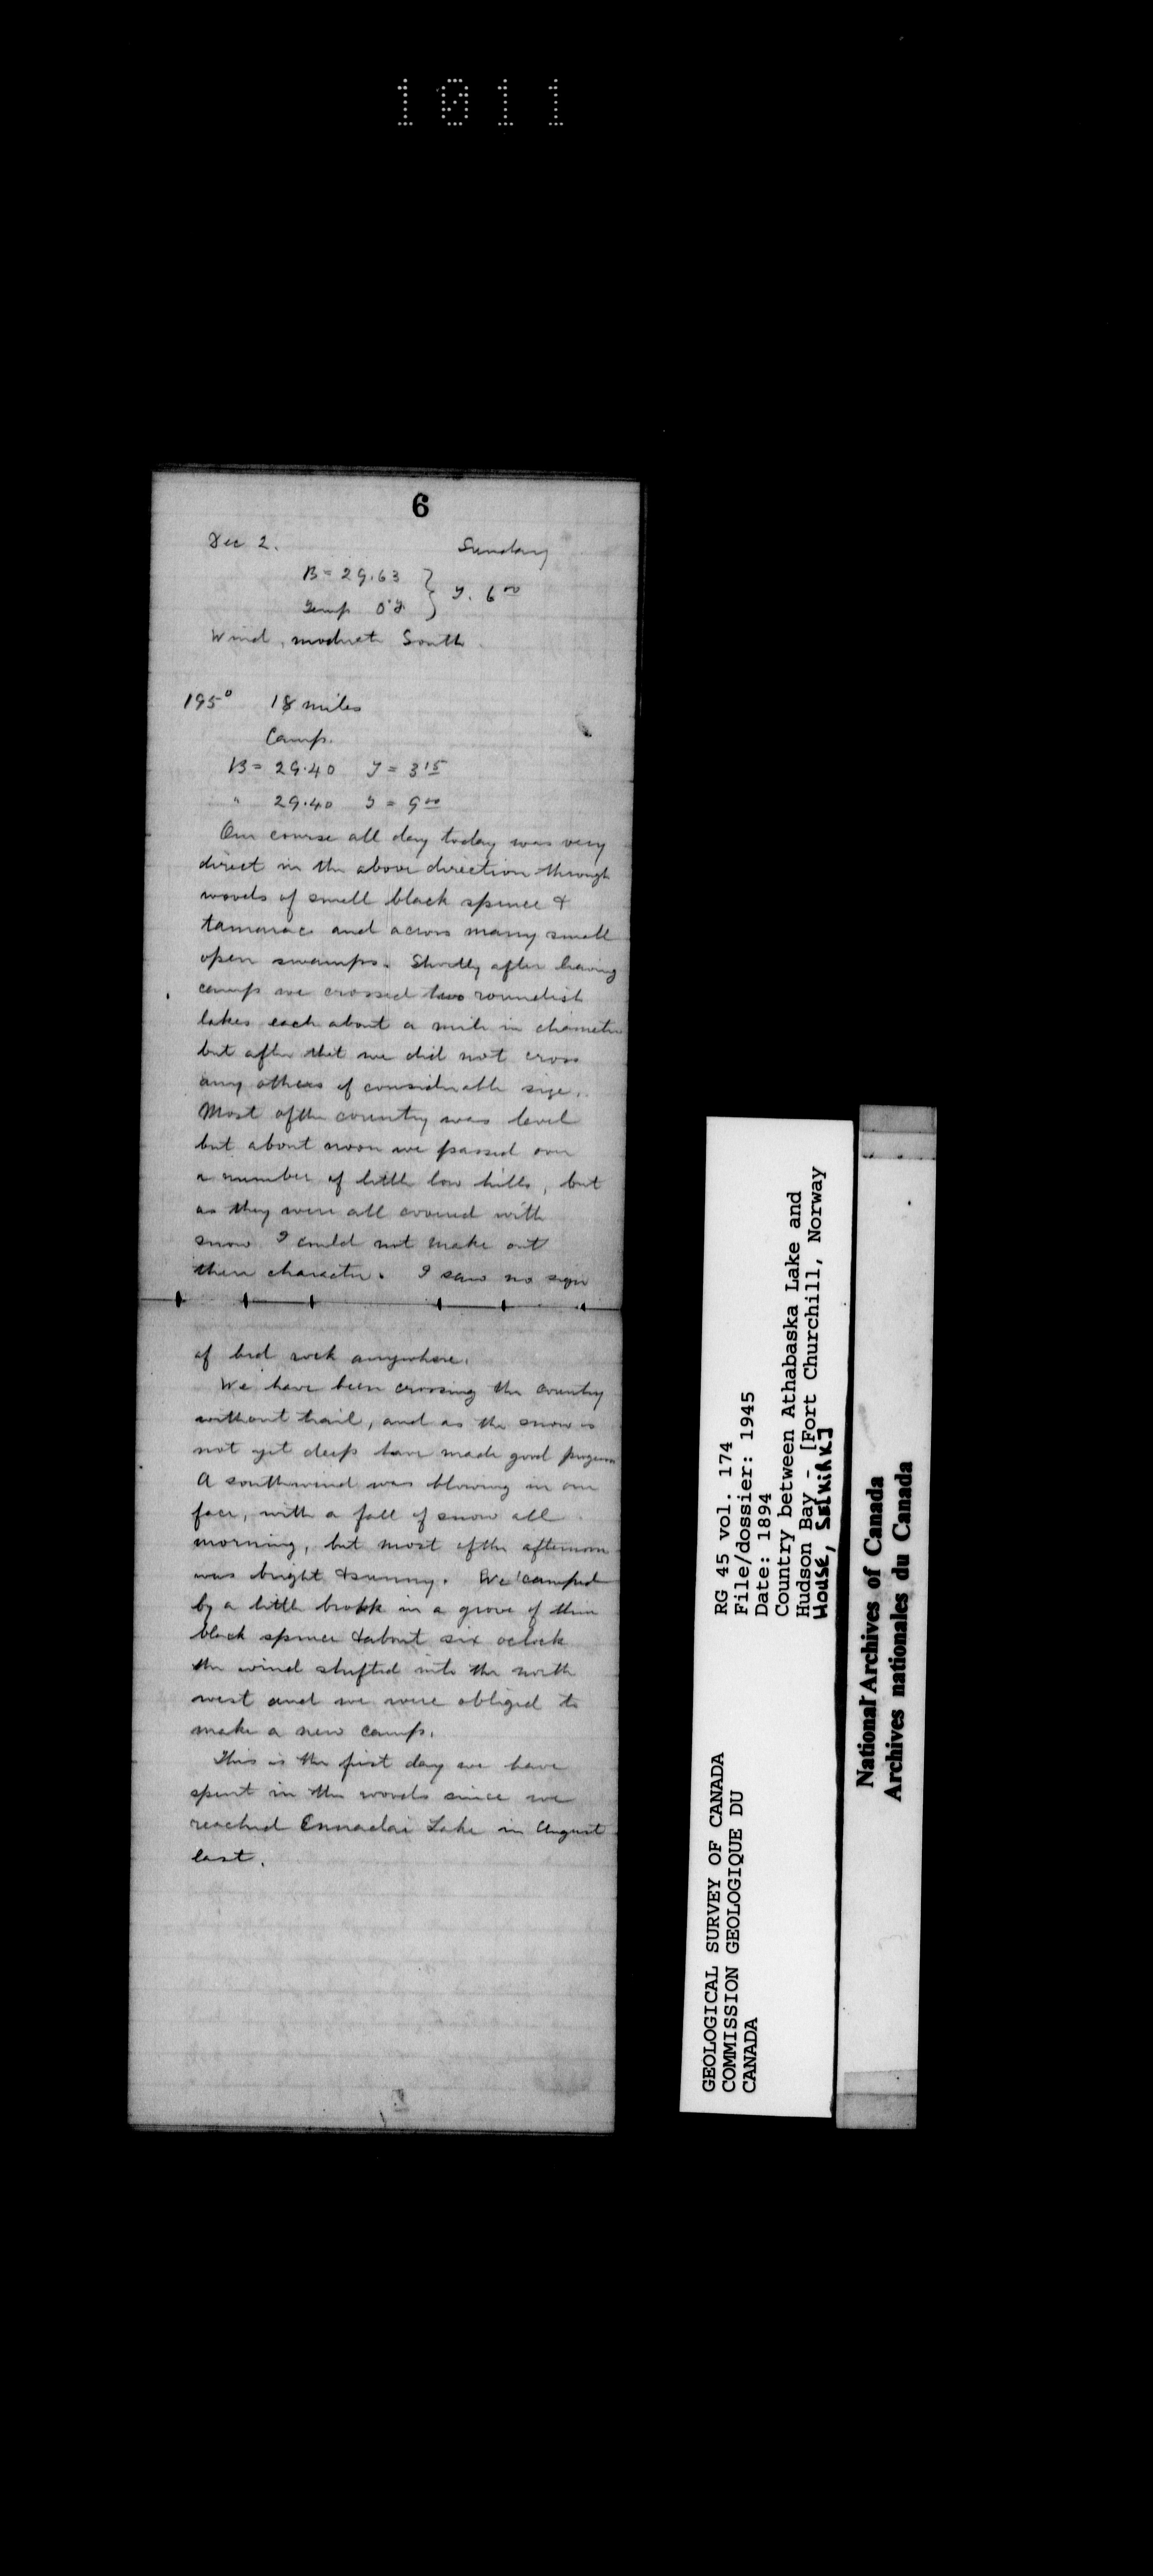 1011
6
Dec 2. Sunday
B = 29.63
Temp 0°F. } T. 6 00
Wind, moderate South.
195° 18 miles
Camp.
B = 29.40 T = 3 15
" 29.40 T = 9 00
Our course all day today was very
direct in the above direction through
woods of small black spruce &
tamarac and across many small
open swamps. Shortly after leaving
camp we crossed two roundish
lakes each about a mile in diameter
but after that we did not cross
any others of considerable size.
Most of the country was level
but about noon we passed over
a number of little low hills, but
as they were all covered with
snow I could not make out
their character. I saw no sign
of bed rock anywhere.
We have been crossing the country
without trail, and as the snow is
not yet deep have made good progress
A south wind was blowing in our
face, with a fall of snow all
morning, but most of the afternoon
was bright & sunny. We camped
by a little brook in a grove of thin
black spruce & about six oclock
the wind shifted into the north
west and we were obliged to
make a new camp.
This is the first day we have
spent in the woods since we
reached Ennadai Lake in August
last.
GEOLOGICAL SURVEY OF CANADA
COMMISSION GEOLOGIQUE DU
CANADA
RG 45 vol. 174
File/dossier: 1945
Date: 1894
Country between Athabaska Lake and
Hudson Bay - [Fort Churchill, Norway
House, Selkirk]
National Archives of Canada
Archives nationales du Canada